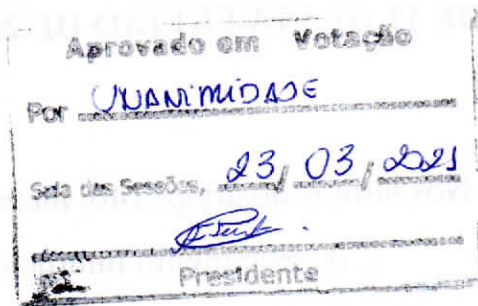 Aprovado em Votação
Por UNANIMIDADE
Sala das Sessões, 23/03/2021
Presidente